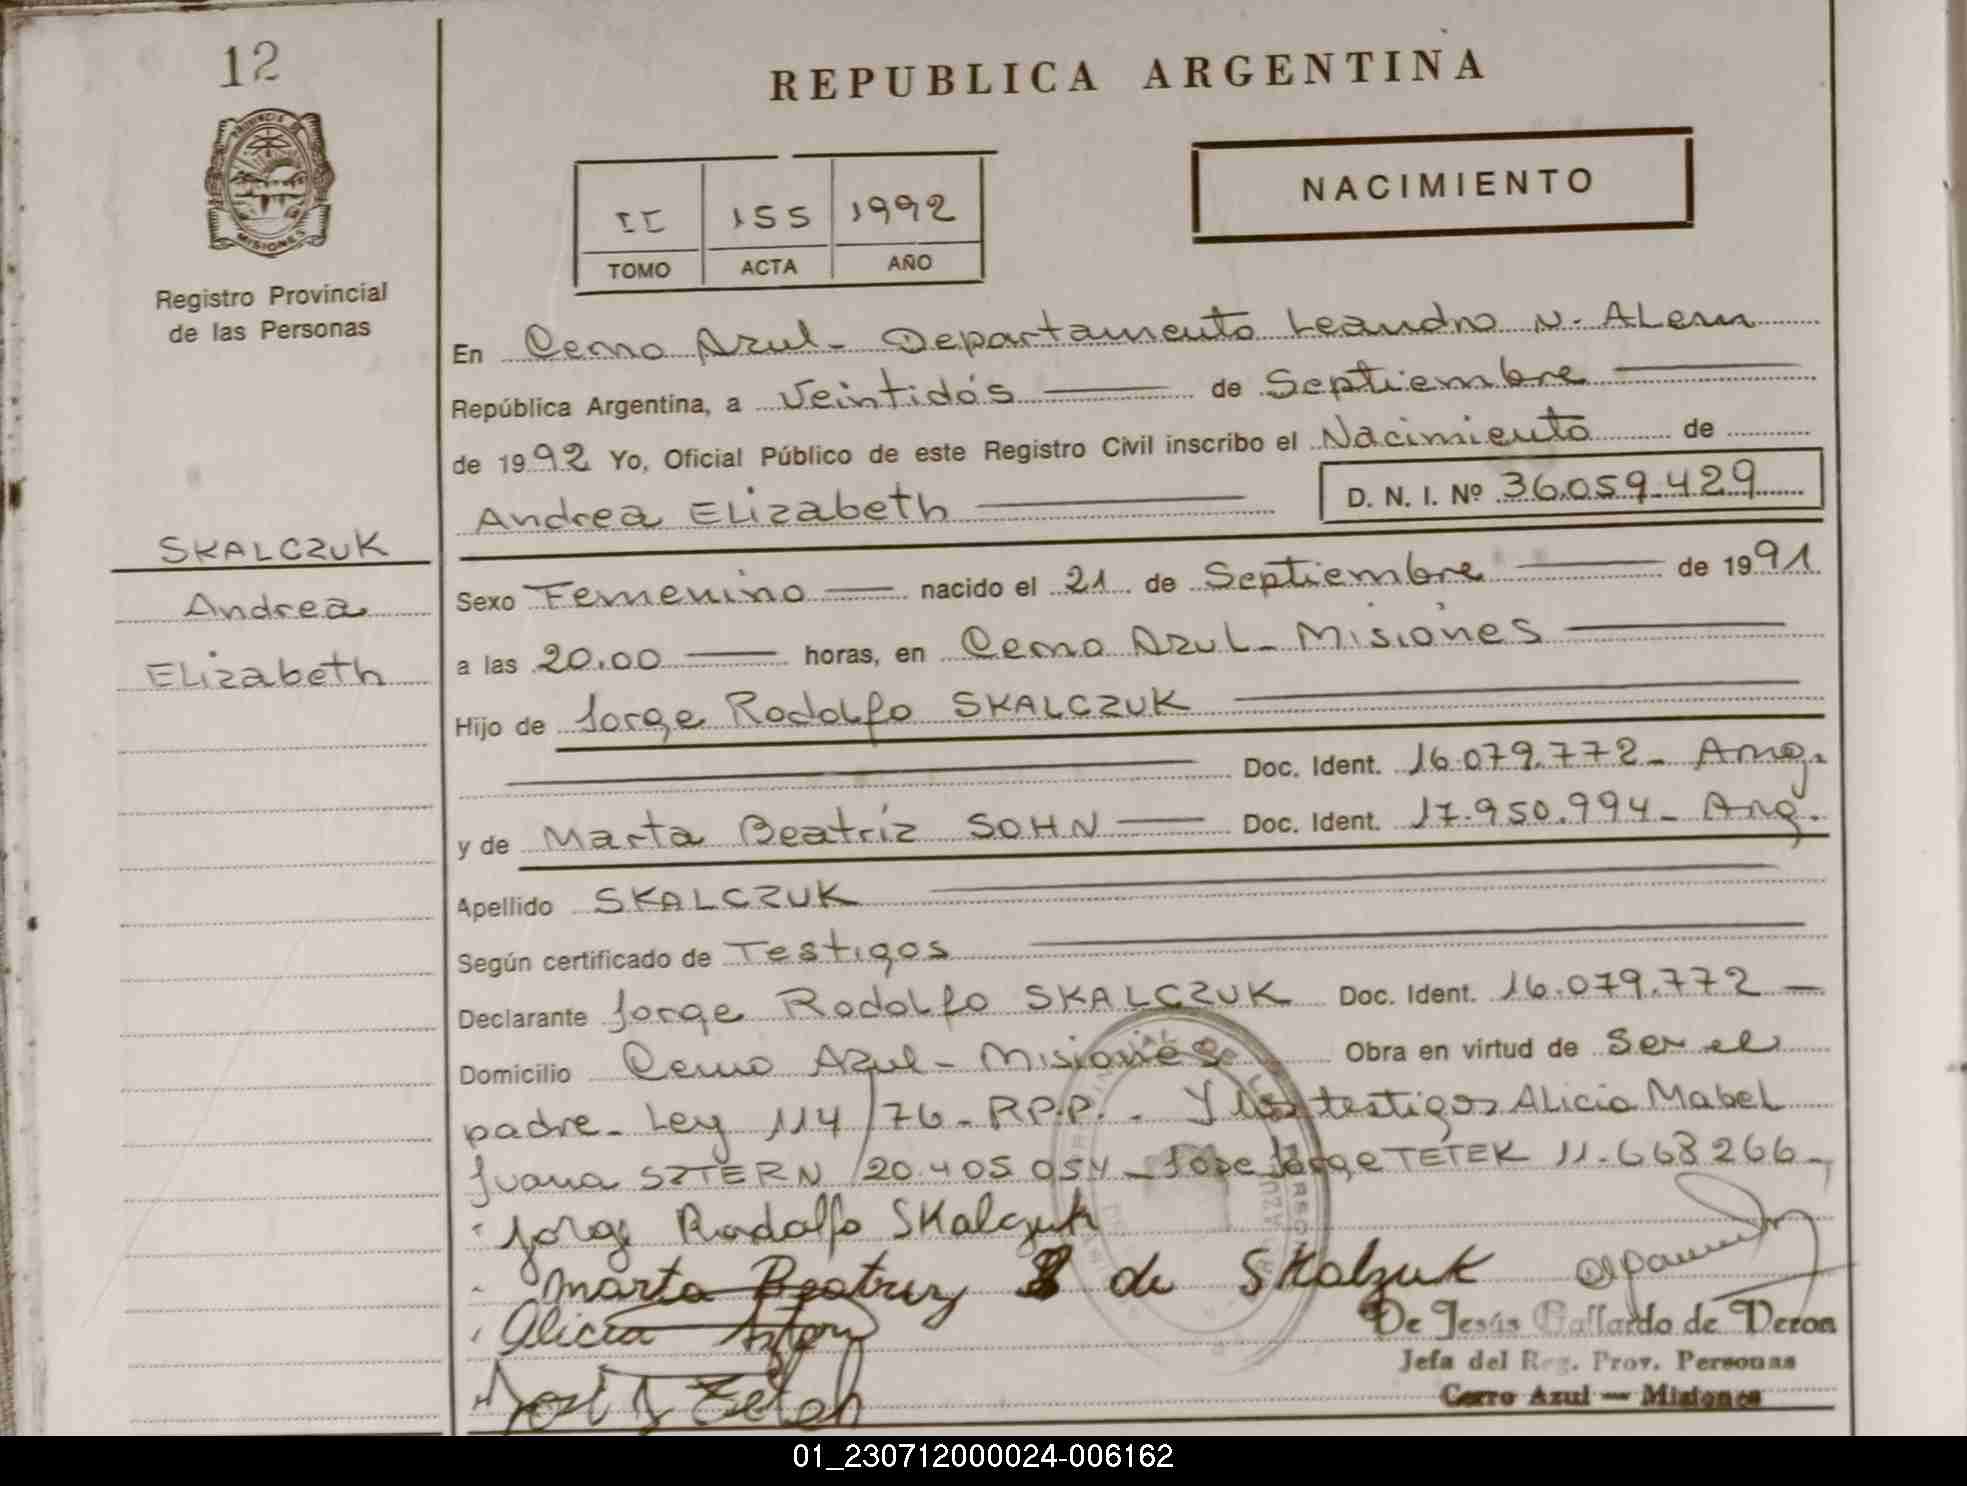 12
REPUBLICA ARGENTINA
PROVINCIA DE
MISIONES
Registro Provincial
de las Personas
NACIMIENTO
II 155 1992
TOMO ACTA AÑO
En Cerro Azul - Departamento Leandro N. ALem
República Argentina, a Veintidós de Septiembre
de 1992 Yo, Oficial Público de este Registro Civil inscribo el Nacimiento de
Andrea ELizabeth D. N. I. Nº 36.059.429
SKALCZUK
Andrea
ELizabeth
Sexo Femenino nacido el 21 de Septiembre de 1991
a las 20.00 horas, en Cerro Azul - Misiones
Hijo de Jorge Rodolfo SKALCZUK
Doc. Ident. 16.079.772 - Arg.
y de Marta Beatriz SOHN Doc. Ident. 17.950.994 - Arg.
Apellido SKALCZUK
Según certificado de Testigos
Declarante Jorge Rodolfo SKALCZUK Doc. Ident. 16.079.772
Domicilio Cerro Azul - Misiones Obra en virtud de ser el
padre - Ley 114/76 - RP.P. - Y los testigos Alicia Mabel
Juana SZTERN 20.405.054 - Jose Jorge TETEK 11.668.266 -
Jorge Rodolfo SKalczuk
Marta Beatriz S de SKalzuk
Alicia
De Jesús Gallardo de Veron
Jefa del Reg. Prov. Personas
Cerro Azul — Misiones
01_230712000024-006162